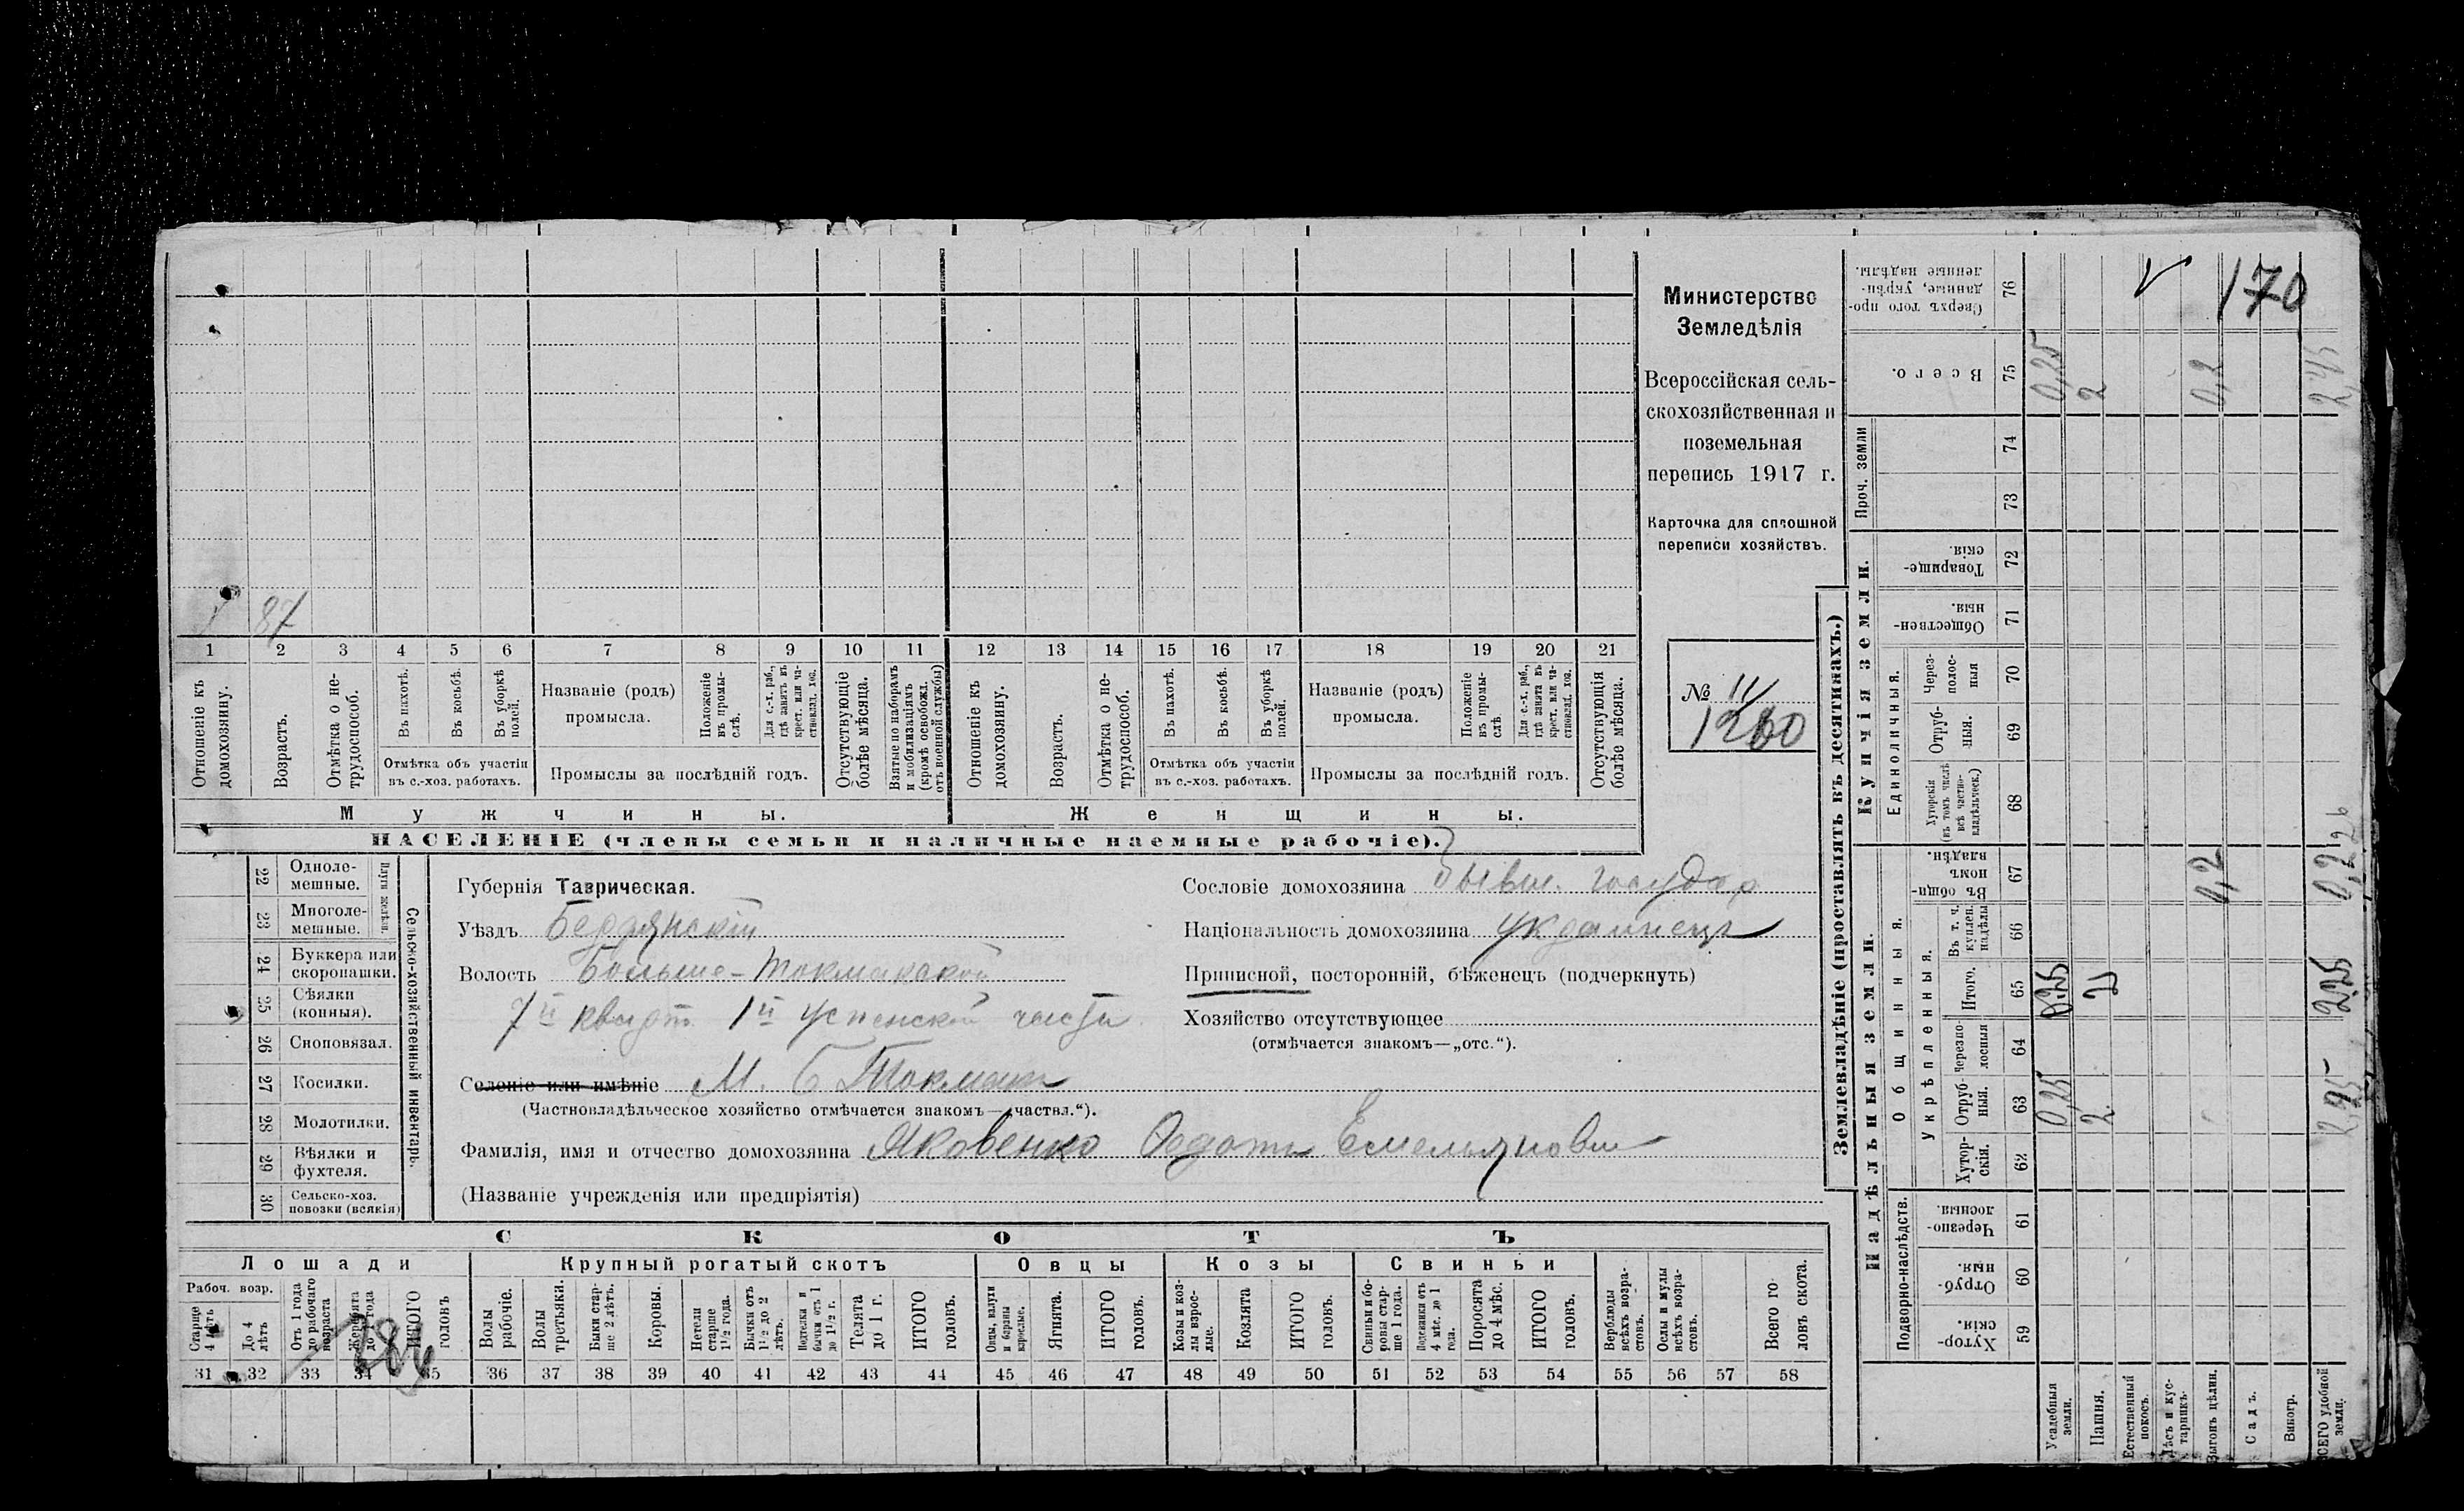 1 87
1 2 3 4 5 6 7 8 9 10 11 12 13 14 15 16 17 18 19 20 21
Отношеніе къ домохозяину.
Возрастъ.
Отмѣтка о не-трудоспособ.
Въ пахотѣ.
Въ косьбѣ.
Въ уборкѣ полей.
Отмѣтка объ участіи
въ с.-хоз. работахъ.
Названіе (родъ)
промысла.
Положеніе въ промы-слѣ.
Для с.-х. раб., гдѣ занятъ въ крест. или ча-стновлад. хоз.
Промыслы за послѣдній годъ.
Отсутствующіе болѣе мѣсяца.
Взятые по наборамъ и мобилизаціямъ (кромѣ освобожд. отъ военной службы)
Отношеніе къ домохозяину.
Возрастъ.
Отмѣтка о не-трудоспособ.
Въ пахотѣ.
Въ косьбѣ.
Въ уборкѣ полей.
Отмѣтка объ участіи
въ с.-хоз. работахъ.
Названіе (родъ)
промысла.
Положеніе въ промы-слѣ
Для с.-х. раб., гдѣ занята въ крест. или ча-стновлад. хоз.
Промыслы за послѣдній годъ.
Отсутствующія болѣе мѣсяца.
Мужчины. Женщины.
НАСЕЛЕНІЕ (члены семьи и наличные наемные рабочіе).
Министерство
Земледѣлія
Всероссійская сель-
скохозяйственная и
поземельная
перепись 1917 г.
Карточка для сплошной
переписи хозяйствъ.
№ 11/
1260
Сельско-хозяйственный инвентарь.
Плуги желѣзн.
22 Одноле-мешные.
23 Многоле-мешные.
24 Буккера или скоропашки.
25 Сѣялки (конныя).
26 Сноповязал.
27 Косилки.
28 Молотилки.
29 Вѣялки и фухтеля.
30 Сельско-хоз. повозки (всякія)
Губернія Таврическая.
Уѣздъ Бердянскій
Волость Больше-Токмакской
7й кварт. 1й Успенской части
Селеніе или имѣніе М. Б Токмакъ
(Частновладѣльческое хозяйство отмѣчается знакомъ—„частвл.“).
Фамилія, имя и отчество домохозяина Яковенко Федотъ Емельянович
(Названіе учрежденія или предпріятія)
Сословіе домохозяина бывш. государ
Національность домохозяина украинецъ
Приписной, посторонній, бѣженецъ (подчеркнуть)
Хозяйство отсутствующее
(отмѣчается знакомъ—„отс.“).
СКОТЪ
Лошади Крупный рогатый скотъ Овцы Козы Свиньи
Рабоч. возр.
Старше 4 лѣтъ
До 4 лѣтъ
Отъ 1 года до рабочаго возраста
Жеребята до 1 года
ИТОГО головъ
Волы рабочіе.
Волы третьяки.
Быки стар-ше 2 лѣтъ.
Коровы.
Нетели старше 1½ года.
Бычки отъ 1½ до 2 лѣтъ.
Подтелки и бычки отъ 1 до 1½ г.
Телята до 1 г.
ИТОГО головъ.
Овцы, валухи и бараны взрослые.
Ягнята.
ИТОГО головъ.
Козы и коз-лы взрос-лые.
Козлята
ИТОГО головъ.
Свиньи и бо-ровы стар-ше 1 года.
Подсвинки отъ 4 мѣс. до 1 года.
Поросята до 4 мѣс.
ИТОГО головъ.
Верблюды всѣхъ возра-стовъ.
Ослы и мулы всѣхъ возра-стовъ.
Всего го-ловъ скота.
31 32 33 34 35 36 37 38 39 40 41 42 43 44 45 46 47 48 49 50 51 52 53 54 55 56 57 58
Землевладѣніе (проставлять въ десятинахъ.)
170
Сверхъ того про-данные, укрѣп-ленные надѣлы. 76
Всего. 75 0,25 2 0,2 2,45
Проч. земли 74 73
Купчія земли.
Товарище-скія. 72
Обществен-ныя. 71
Единоличныя.
Через-полос-ныя 70
Отруб-ныя. 69
Хуторскія (въ томъ числѣ всѣ частно-владѣльческ.) 68
Надѣльныя земли.
Общинныя.
Въ общин-номъ владѣн. 67 0,2 0,2
Укрѣпленныя.
Въ т. ч. куплен. надѣлы 66
Итого. 65 0,25 2 2,25
Черезпо-лосныя 64
Отруб-ныя. 63 0,25 2
Хутор-скія. 62
Подворно-наслѣдств.
Черезпо-лосныя. 61
Отруб-ныя. 60
Хутор-скія. 59
Усадебныя земли.
Пашня.
Естественный покосъ.
Лѣсъ и кус-тарникъ.
Выгонъ цѣлин.
Садъ.
Виногр.
ВСЕГО удобной земли.